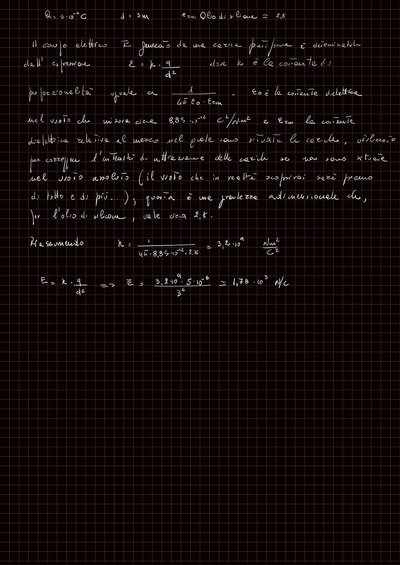 Q = 5·10⁻⁶ C d = 3m εrm Olio di silicone = 2,8
Il campo elettrico E generato da una carica puntiforme è determinabile
dall'espressione E = k · q/d² dove k è la costante di
proporzionalità uguale a 1/(4π · ε₀ · εrm) . ε₀ è la costante dielettrica
nel vuoto che misura circa 8,85 · 10⁻¹² C²/Nm² e εrm la costante
dielettrica relativa al mezzo nel quale sono situate le cariche, utilizzato
per correggere l'intensità di attrazione delle cariche se non sono situate
nel vuoto assoluto (il vuoto che in realtà scoprirai sarà pieno
di tutto e di più...), questa è una grandezza adimensionale che,
per l'olio di silicone, vale circa 2,8.
Riassumendo k = 1/(4π · 8,85·10⁻¹² · 2,8) = 3,2·10⁹ Nm²/C²
E = k · q/d² => E = 3,2·10⁹ · 5·10⁻⁶/3² ≃ 1,78 · 10³ N/C